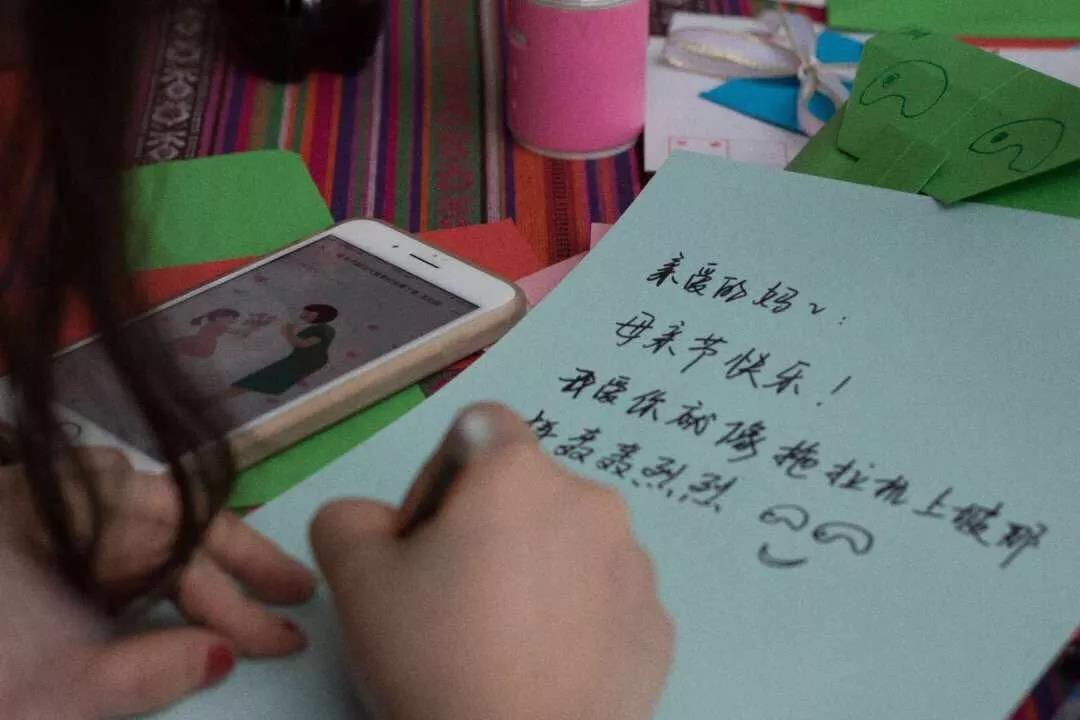 亲爱的妈~:
母亲节快乐!
我爱你就像拖拉机上坡那
样轰轰烈烈